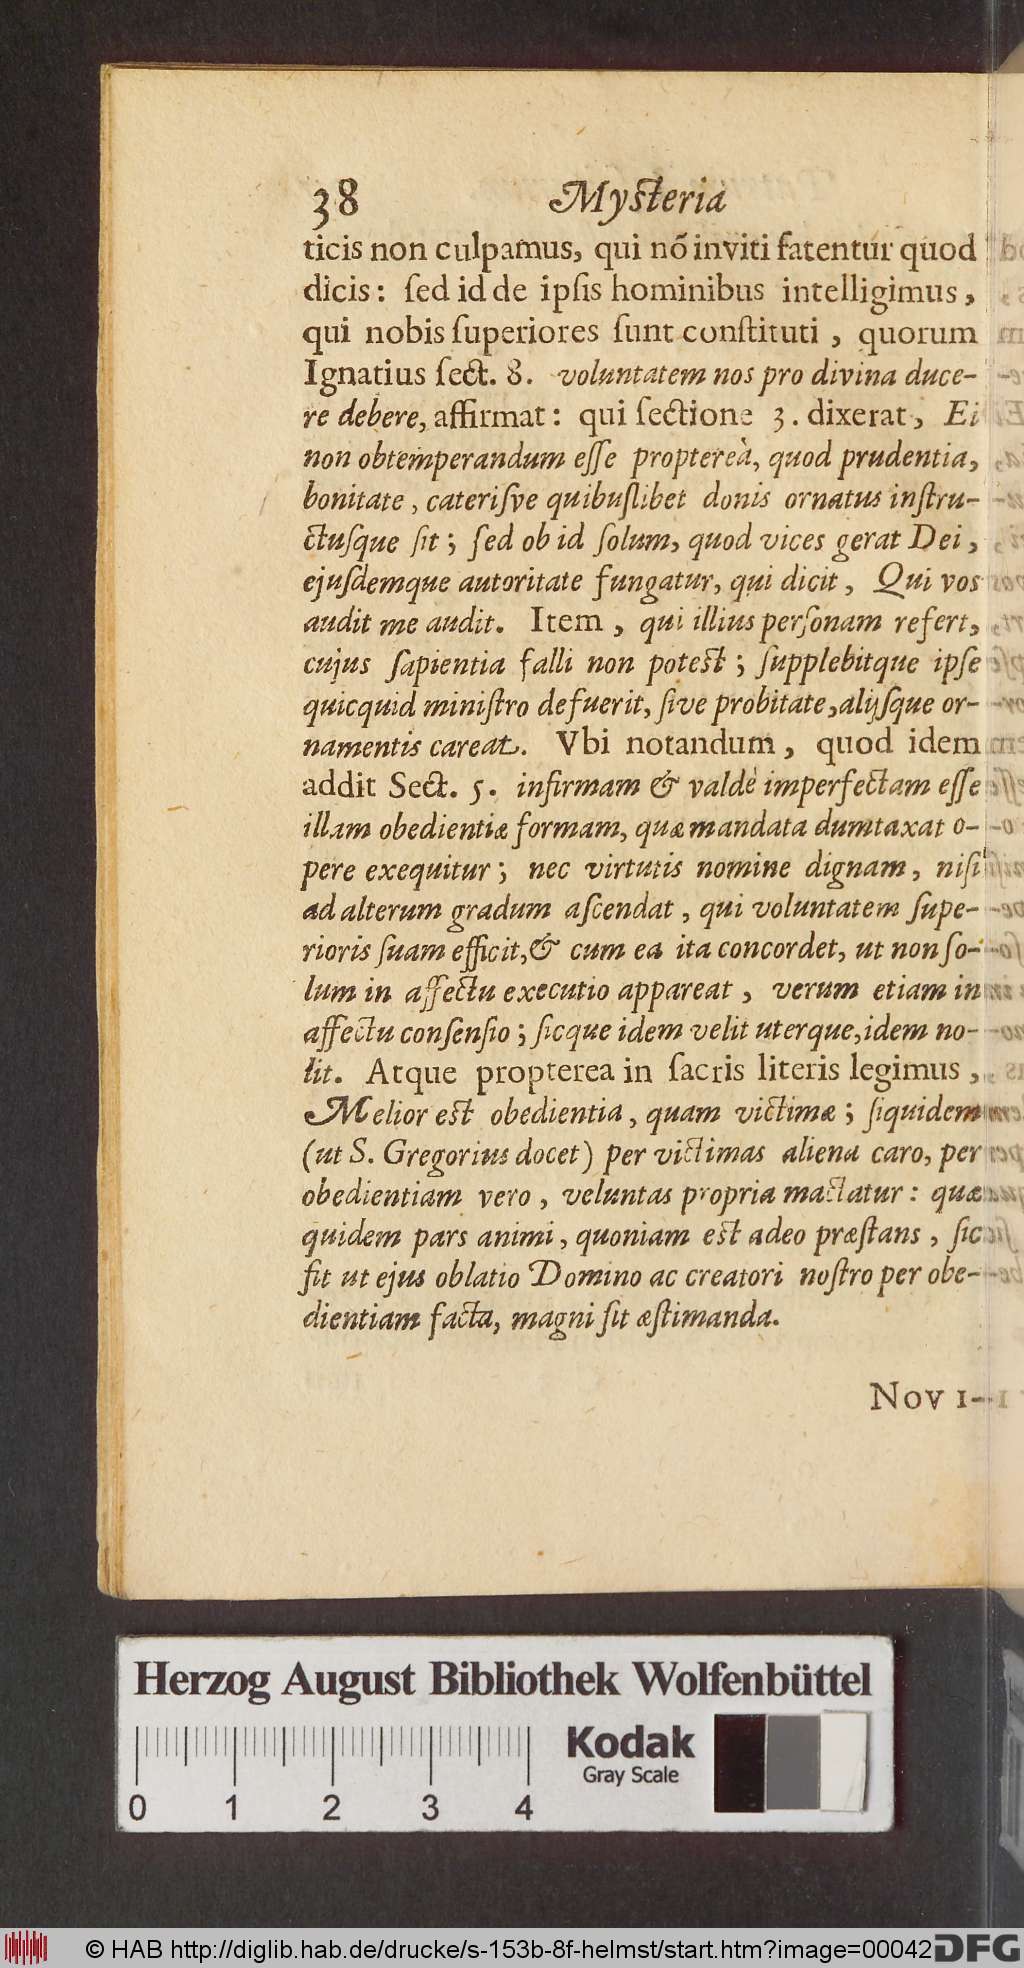 38 Mysteria
ticis non culpamus, qui nõ inviti fatentur quod
dicis: ſed id de ipſis hominibus intelligimus,
qui nobis ſuperiores ſunt conſtituti, quorum
Ignatius ſect. 8. voluntatem nos pro divina duce-
re debere, affirmat: qui ſectione 3. dixerat, Ei
non obtemperandum eſſe propterea, quod prudentia,
bonitate, cateriſve quibuſlibet donis ornatus inſtru-
ctuſque ſit; ſed ob id ſolum, quod vices gerat Dei,
ejuſdemque autoritate fungatur, qui dicit, Qui vos
audit me audit. Item, qui illius perſonam refert,
cujus ſapientia falli non potest; ſupplebitque ipſe
quicquid miniſtro defuerit, ſive probitate, alijſque or-
namentis careat. Vbi notandum, quod idem
addit Sect. 5. infirmam & valdè imperfectam eſſe
illam obedientiæ formam, quæ mandata dumtaxat o-
pere exequitur; nec virtutis nomine dignam, niſi
ad alterum gradum aſcendat, qui voluntatem ſupe-
rioris ſuam efficit, & cum ea ita concordet, ut non ſo-
lum in affectu executio appareat, verum etiam in
affectu conſenſio; ſicque idem velit uterque, idem no-
lit. Atque propterea in ſacris literis legimus,
Melior est obedientia, quam victimæ; ſiquidem
(ut S. Gregorius docet) per victimas aliena caro, per
obedientiam vero, veluntas propria mactatur: quæ
quidem pars animi, quoniam est adeo præſtans, ſic
fit ut ejus oblatio Domino ac creatori noſtro per obe-
dientiam facta, magni ſit æſtimanda.
Nov 1-
Herzog August Bibliothek Wolfenbüttel
Kodak
Gray Scale
0 1 2 3 4
© HAB http://diglib.hab.de/drucke/s-153b-8f-helmst/start.htm?image=00042
DFG